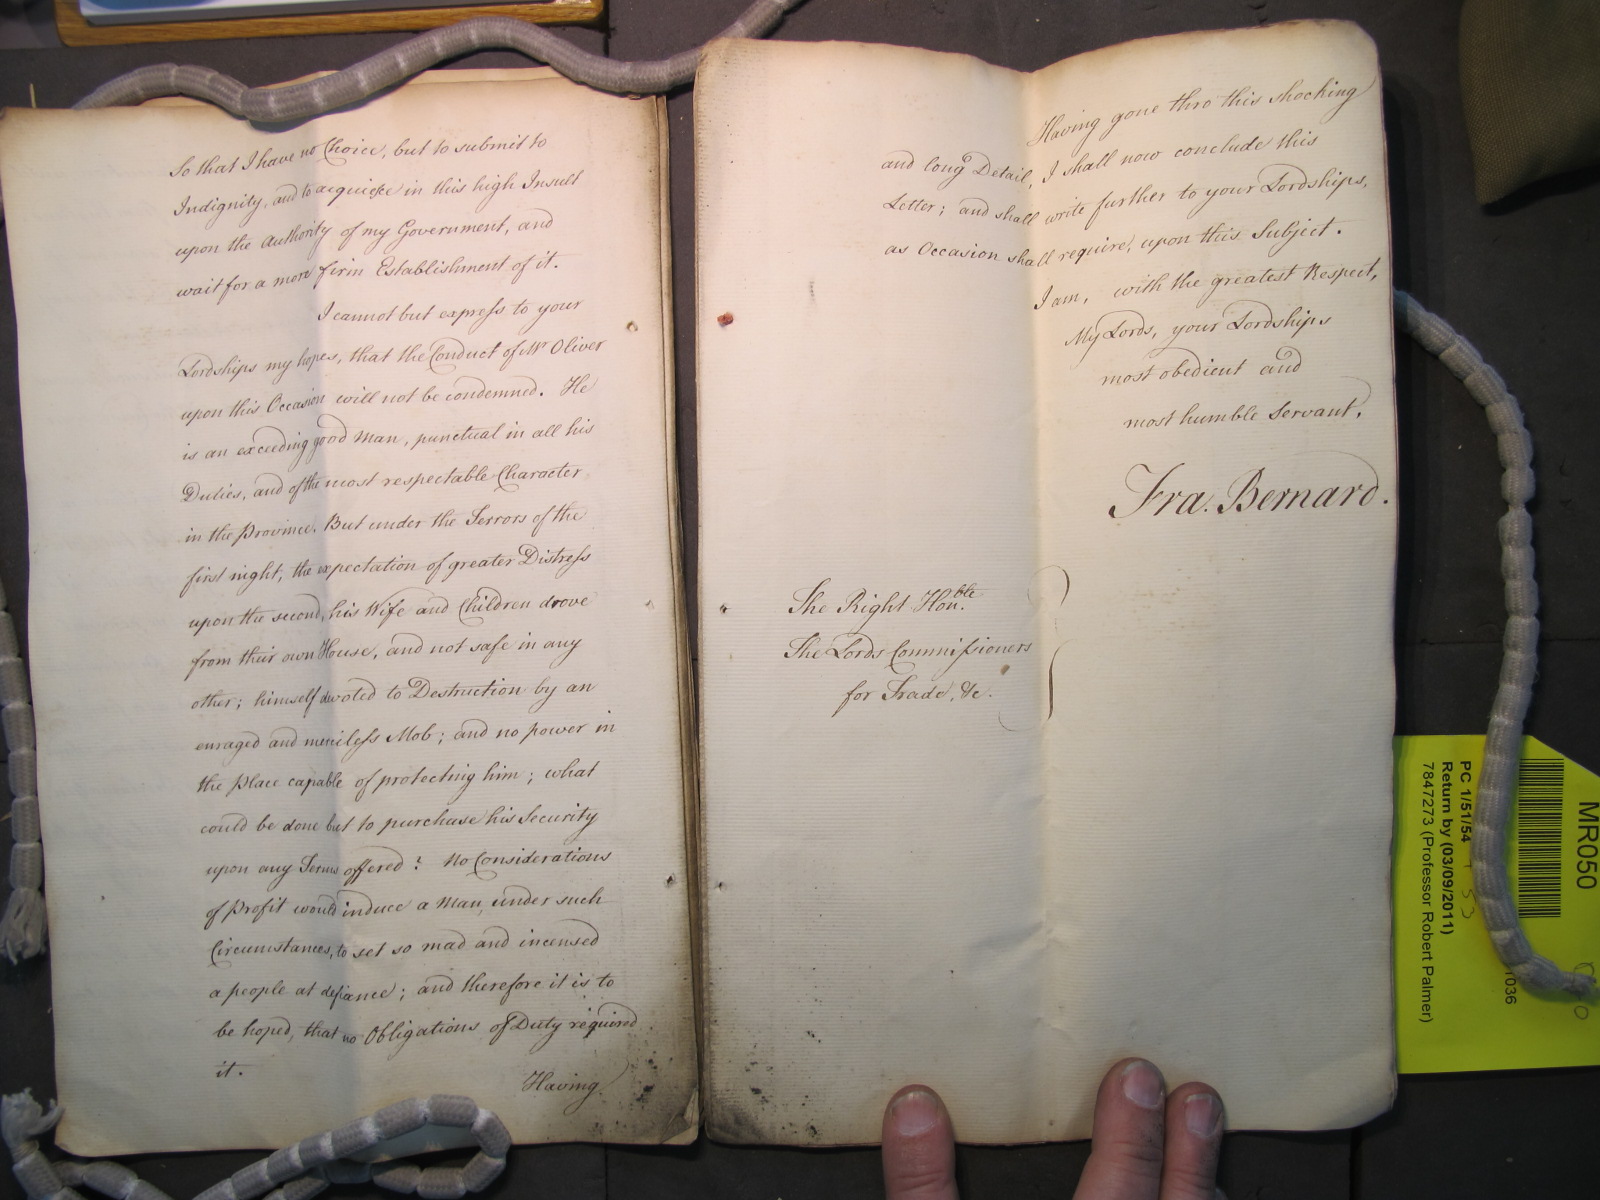 So that I have no Choice, but to submit to
Indignity, and to acquiesce in this high Insult
upon the Authority of my Government, and
wait for a more firm Establishment of it.
I cannot but express to your
Lordships my hopes, that the Conduct of Mr Oliver
upon this Occasion will not be condemned. He
is an exceeding good Man, punctual in all his
Duties, and of the most respectable Character
in the Province. But under the Terrors of the
first night, the expectation of greater Distress
upon the second, his Wife and Children drove
from their own House, and not safe in any
other; himself devoted to Destruction by an
enraged and merciless Mob; and no power in
the Place capable of protecting him; what
could be done but to purchase his Security
upon any Terms offered? No Considerations
of Profit would induce a Man, under such
Circumstances, to set so mad and incensed
a people at defiance; and therefore it is to
be hoped, that no Obligations of Duty required
it.
Having
Having gone thro this shocking
and long Detail, I shall now conclude this
Letter; and shall write further to your Lordships,
as Occasion shall require, upon this Subject.
I am, with the greatest Respect,
My Lords, your Lordships
most obedient and
most humble Servant,
Fra. Bernard.
The Right Honble.
The Lords Commissioners
for Trade, &c.
MR050
PC 1/51/54
Return by (03/09/2011)
7847273 (Professor Robert Palmer)
1036